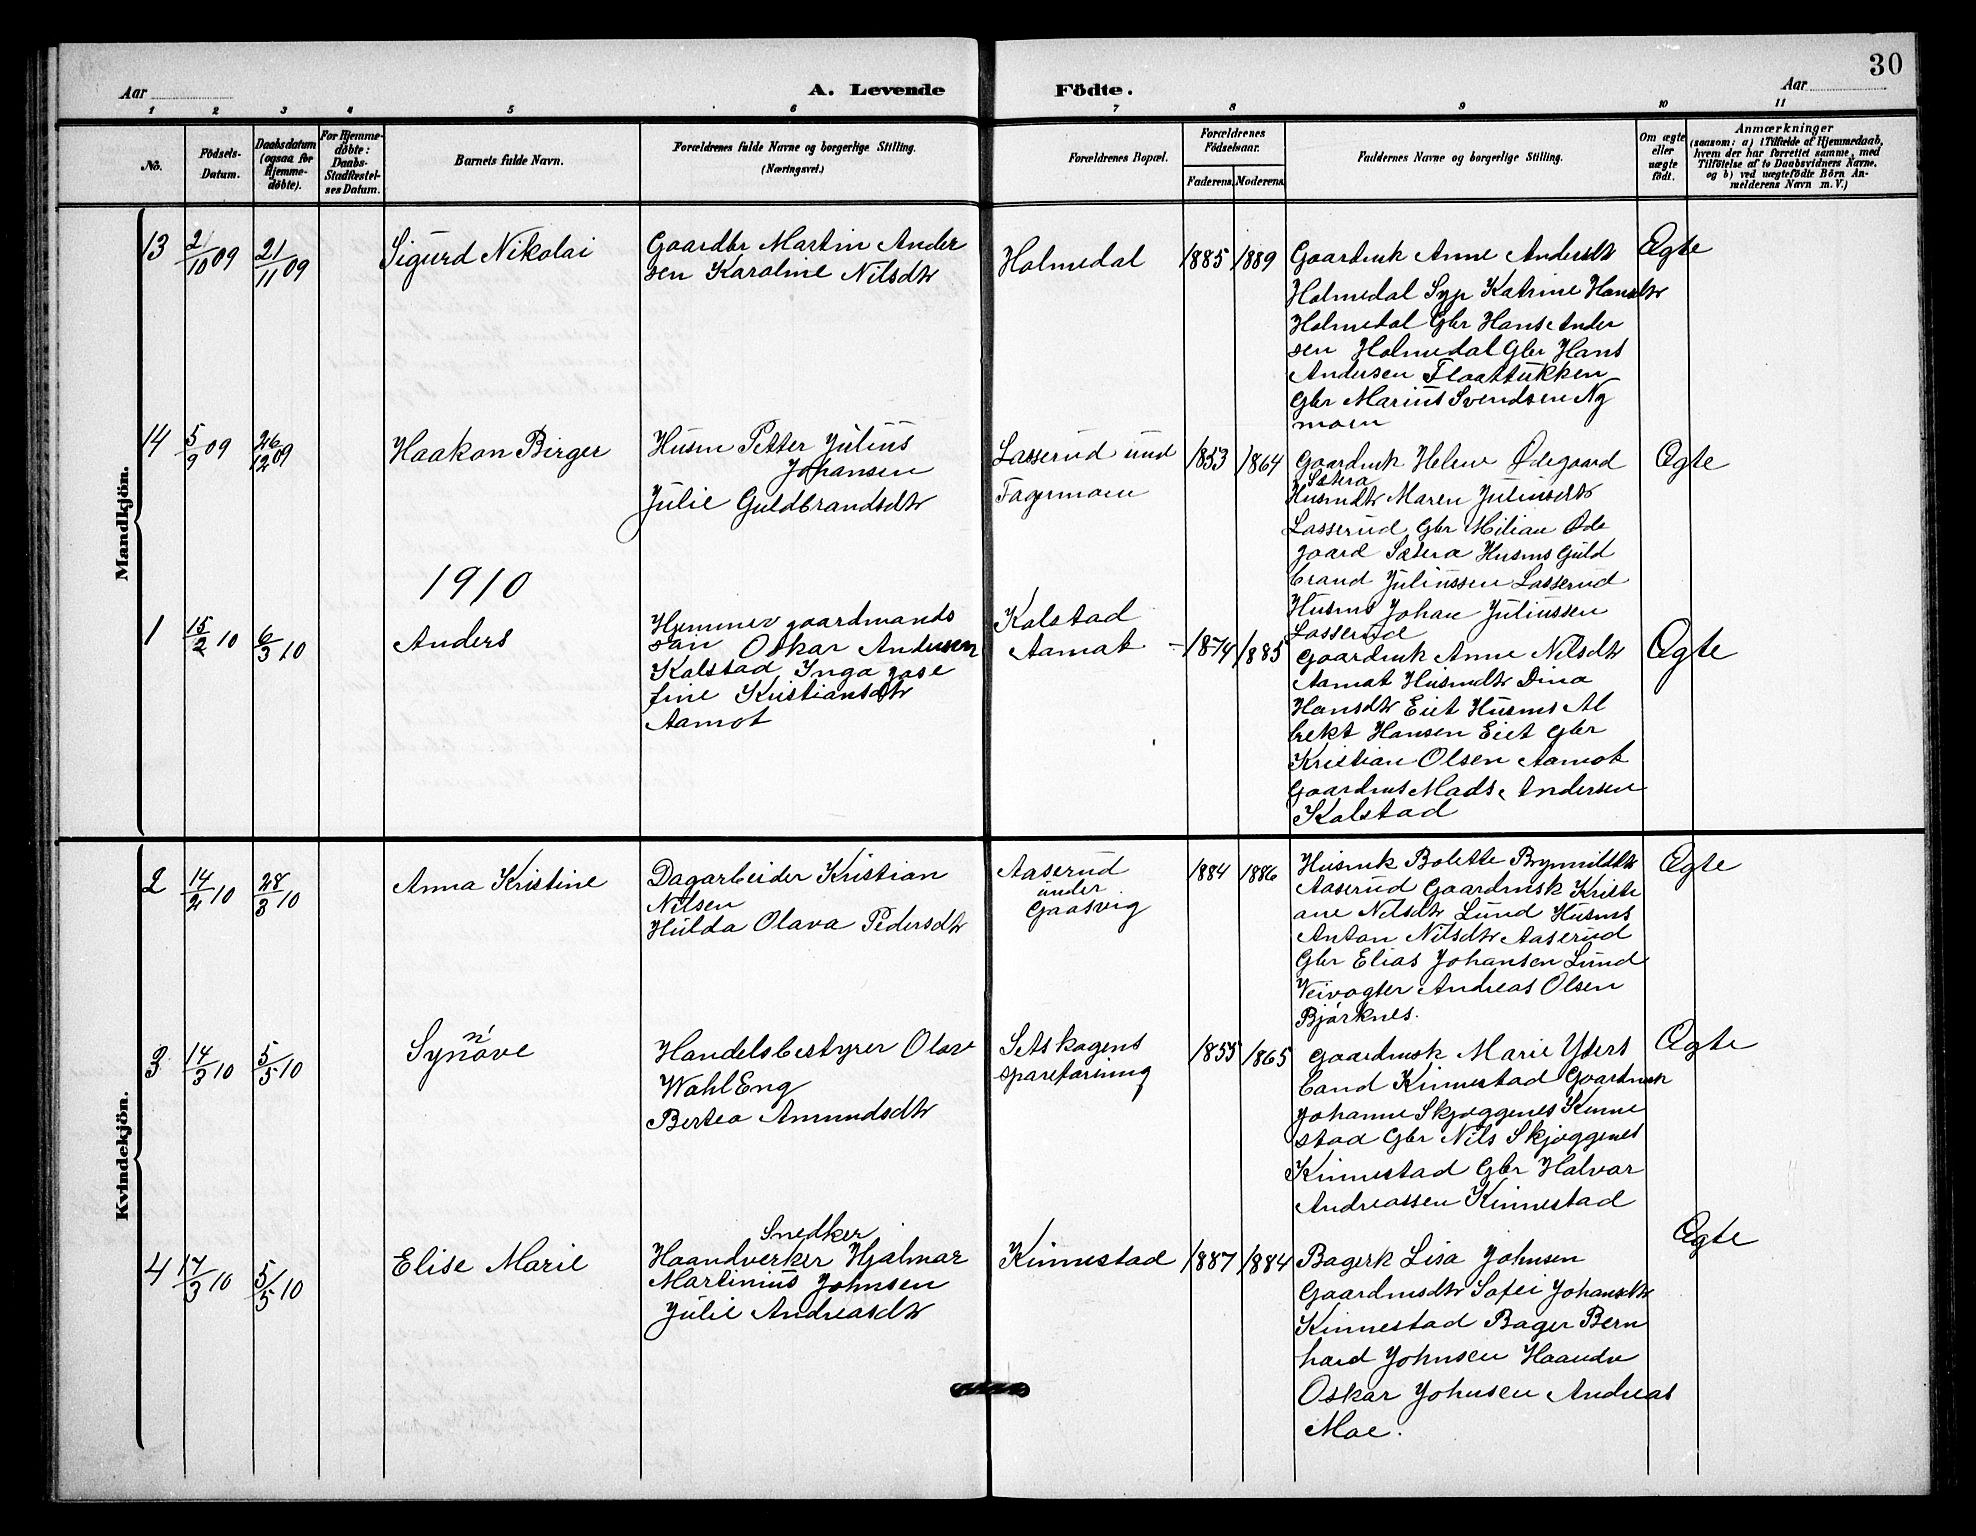 30
Aar
A. Levende Födte.
Aar
1 2 3 4 5 6 7 8 9 10 11
No.
Födsels-
Datum.
Daabsdatum
(ogsaa for
Hjemme-
döbte).
For Hjemme-
döbte:
Daabs-
Stadfæstel-
ses Datum.
Barnets fulde Navn.
Forældrenes fulde Navne og borgerlige Stilling.
(Næringsvei.)
Forældrenes Bopæl.
Forældrenes
Födselsaar.
Faderens. Moderens.
Faddernes Navne og borgerlige Stilling.
Om ægte
eller
uægte
födt.
Anmærkninger
(saasom: a) i Tilfælde af Hjemmedaab,
hvem der har forrettet samme, med
Tilföielse af to Daabsvidners Navne.
og b) ved uægtefödte Börn An-
melderens Navn m. V.)
Mandkjön.
13
2/10 09
21/11 09
Sigurd Nikolai
Gaardbr Martin Ander
sen Karoline Nilsdtr
Holmedal
1885 1889
Gaardmk Anne Andersdtr
Holmedal Syp Katrine Hansdtr
Holmedal Gbr Hans Ander
sen Holmedal Gbr Hans
Andersen Flaattukken
Gbr Marius Svendsen Ny
moen
Ægte
14
5/9 09
26/12 09
Haakon Birger
Husm Petter Julius
Johansen
Julie Guldbrandsdtr
Lasserud und
Fagermoen
1853 1864
Gaardmk Helene Ødegaard
Sætera
Husmdtr Maren Juliusdtr
Lasserud Gbr Milian Øde
gaard Sætera Husms Guld
brand Juliussen Lasserud
Husms Johan Juliussen
Lasserud
Ægte
1910
1
15/2 10
6/3 10
Anders
Hjemmev gaardmands
søn Oskar Andersen
Kalstad Inga Jose
fine Kristiansdtr
Aamot
Kalstad
Aamot
1874 1885
Gaardmk Anne Nilsdtr
Aamot Husmdtr Dina
Hansdtr Eiet Husms Al
brekt Hansen Eiet Gbr
Kristian Olsen Aamot
Gaardms Mads Andersen
Kalstad
Ægte
Kvindekjön.
2
14/2 10
28/3 10
Anna Kristine
Dagarbeider Kristian
Nilsen
Hulda Olava Pedersdtr
Aaserud
under
Gaasvig
1884 1886
Husmk Bolette Brynnildsdtr
Aaserud Gaardmsk Kristi
ane Nilsdtr Lund Husms
Anton Nilsdtr Aaserud
Gbr Elias Johansen Lund
Veivogter Andreas Olsen
Bjørknes.
Ægte
3
14/3 10
5/5 10
Synnøve
Handelsbestyrer Olav
Wahl Eng
Bertea Amundsdtr
Setskogens
spareforening
1855 1865
Gaardmsk Marie Yters
land Kinnestad Gaardmsk
Johanne Skjøggenes Kinne
stad Gbr Nils Skjøggenes
Kinnestad Gbr Halvar
Andreassen Kinnestad
Ægte
4
17/3 10
5/5 10
Elise Marie
Snedker
Haandverker Hjalmar
Martinius Johnsen
Julie Andreasdtr
Kinnestad
1887 1884
Bagerk Lisa Johnsen
Gaardmsdtr Sofei Johansdtr
Kinnestad Bager Bern
hard Johnsen Haandv
Oskar Johnsen Andreas
Moe.
Ægte